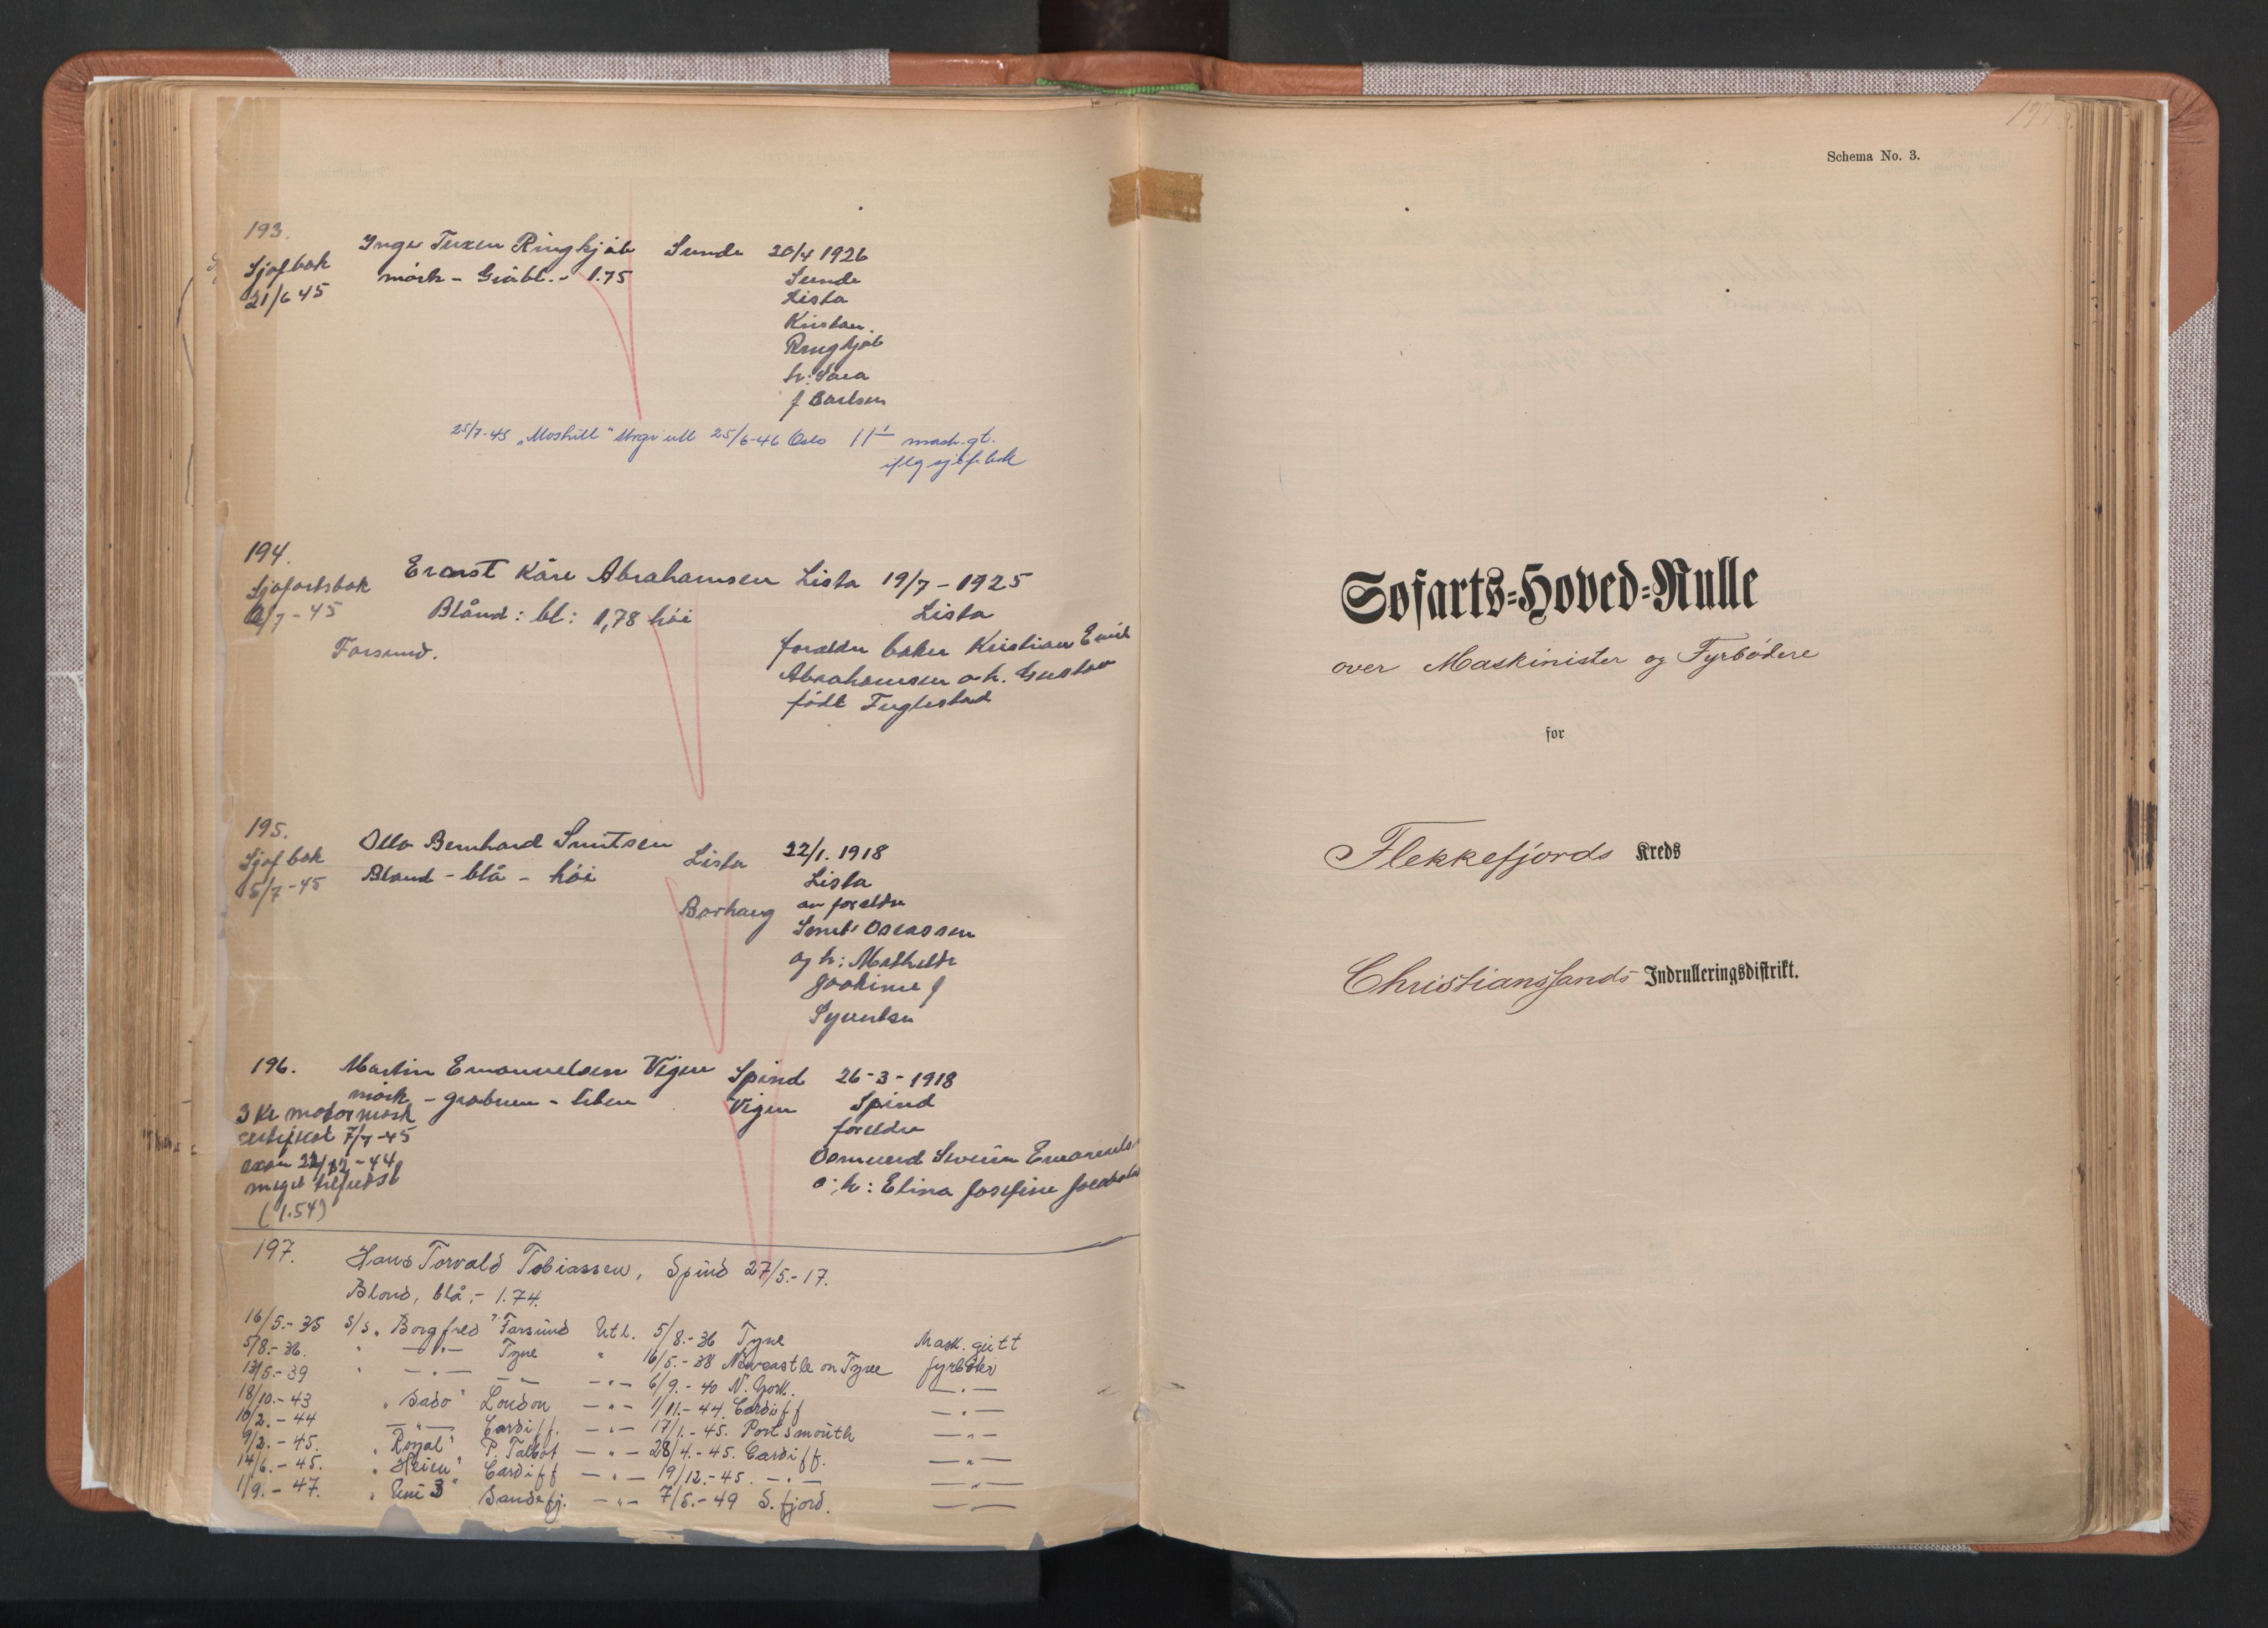 193.
Sjøfbok
21/6 45
Inger Tuxen Ringkjøb Sunde 20/4 1926
mörk - Gråbl. - 1.75
Sunde
Lista
Kristen
Ringkjøb
h: Sara
f Carlsen
25/7-45 "Moshill" 25/6-46 Oslo mask.gt.
iflg sjöf.bok
194.
Sjøfartsbok
/7-45
Farsund.
Ernst Kåre Abrahamsen Lista 19/7-1925
Blånd: bl: 1,78 høi
Lista
foreldre baker Kristian Emil
Abrahamsen o h. Gusta
født Fuglestad
195.
Sjøf bok
5/7-45
Otto Bernhard Smitsen
Bland - blå - høi
Lista
Borhaug
22/1. 1918
Lista
av foreldre
Oseassen
og h: Mathilde
Joakime f
Syvertsen
196. Martin Emanuelsen Vigen Spind 26-3-1918
mörk - gråbrun - liten Vigen Spind
3 Kl motormask
sertifikat 7/7-45
exam 22/12-44
meget tilfredst
(1.54)
foreldre
Osmund Severin Emanuels
o. h: Elina Josefine
197. Hans Torvald Tobiassen, Spind 27/5.-17.
Blond, blå,- 1.74.
16/5.-35 S/s "Borgfred" Farsund Utl. 5/8.-36 Tyne Mask.gutt
5/8.-36. " —"— Tyne " 16/5.-38 Newcastle on Tyne fyrbøter
13/5.-39 " —"— —"— —"— 6/9.-40 N. York. —"—
18/10.-43 "Sado" London —"— 1/11.-44. Cardiff —"—
10/2.-44 —"— Cardiff. —"— 17/1.-45. Portsmouth —"—
9/2.-45. "Royal" P. Talbot —"— 28/4.-45. Cardiff. —"—
14/6.-45. "Heien" Cardiff —"— 19/12.-45. —"— —"—
1/9.-47. "Uni 3" Sandefj. —"— 7/5.-49 S.fjord. —"—
Schema No. 3.
Søfarts-Hoved-Rulle
over Maskinister og Fyrbødere
for
Flekkefjords Kreds
Christianssands Indrulleringsdistrikt.